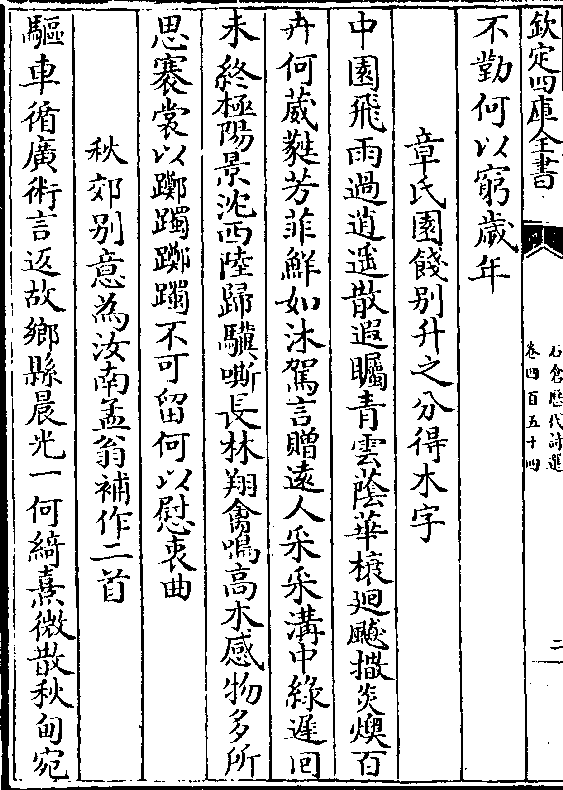 欽定四庫全書
石倉歷代詩選
卷四百五十四
二
不勤何以窮歲年
章氏園餞别升之分得木字
中園飛雨過逍遥散遐矚青雲蔭華榱廻飈撤炎燠百
卉何葳蕤芳菲鮮如沐駕言贈遠人采采溝中緑遲回
未終極陽景沈西陸歸驥嘶長林翔禽鳴高木感物多所
思褰裳以躑躅躑躅不可留何以慰衷曲
秋郊别意為汝南孟翁補作二首
驅車循廣術言返故鄉縣晨光一何綺熹微散秋甸宛